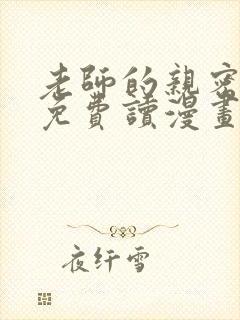 老師的親密
免費讀漫畫
夜纤雪